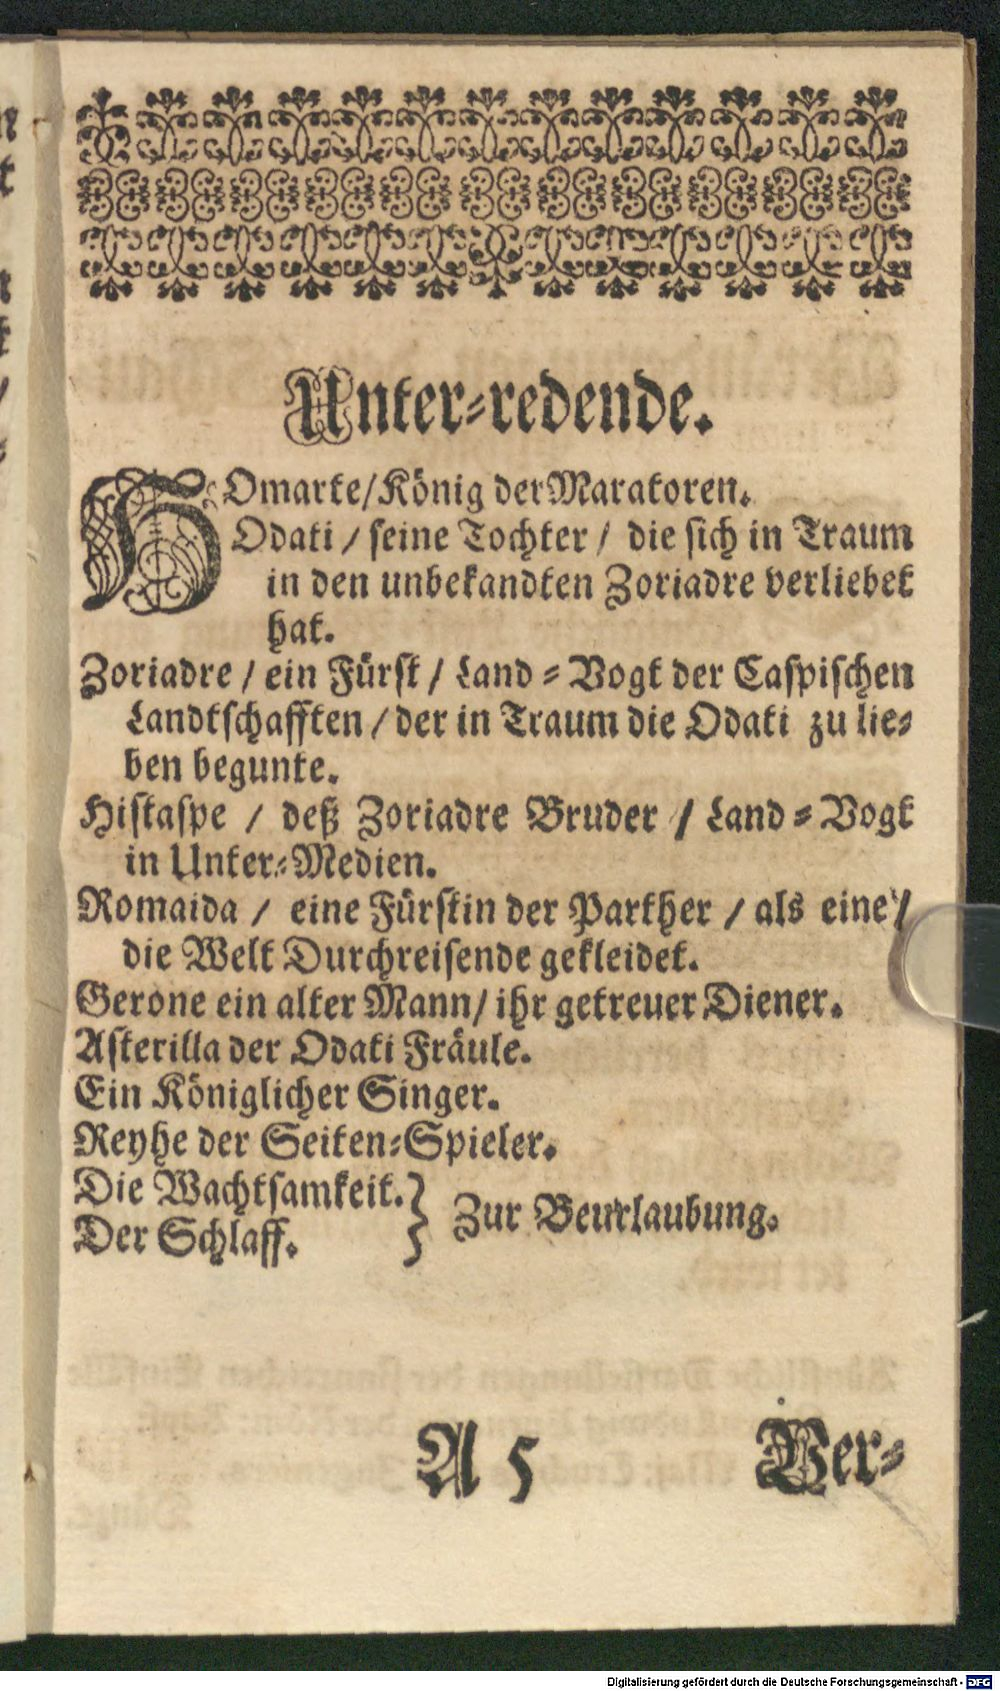 Unter-redende.
HOmarte/König der Maratoren.
Odati / seine Tochter / die sich in Traum
in den unbekandten Zoriadre verliebet
hat.
Zoriadre / ein Fürst / Land-Vogt der Caspischen
Landtschafften / der in Traum die Odati zu lie-
ben begunte.
Histaspe / deß Zoriadre Bruder / Land-Vogt
in Unter-Medien.
Romaida / eine Fürstin der Parther / als eine /
die Welt Durchreisende gekleidet.
Gerone ein alter Mann / ihr getreuer Diener.
Asterilla der Odati Fräule.
Ein Königlicher Singer.
Reyhe der Seiten-Spieler.
Die Wachtsamkeit. } Zur Beurlaubung.
Der Schlaff.
A 5 Ver-
Digitalisierung gefördert durch die Deutsche Forschungsgemeinschaft - DFG